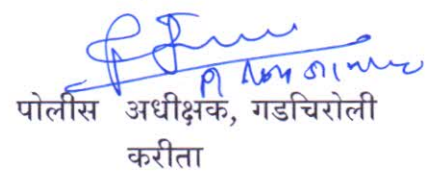 पोलीस अधीक्षक, गडचिरोली
करीता